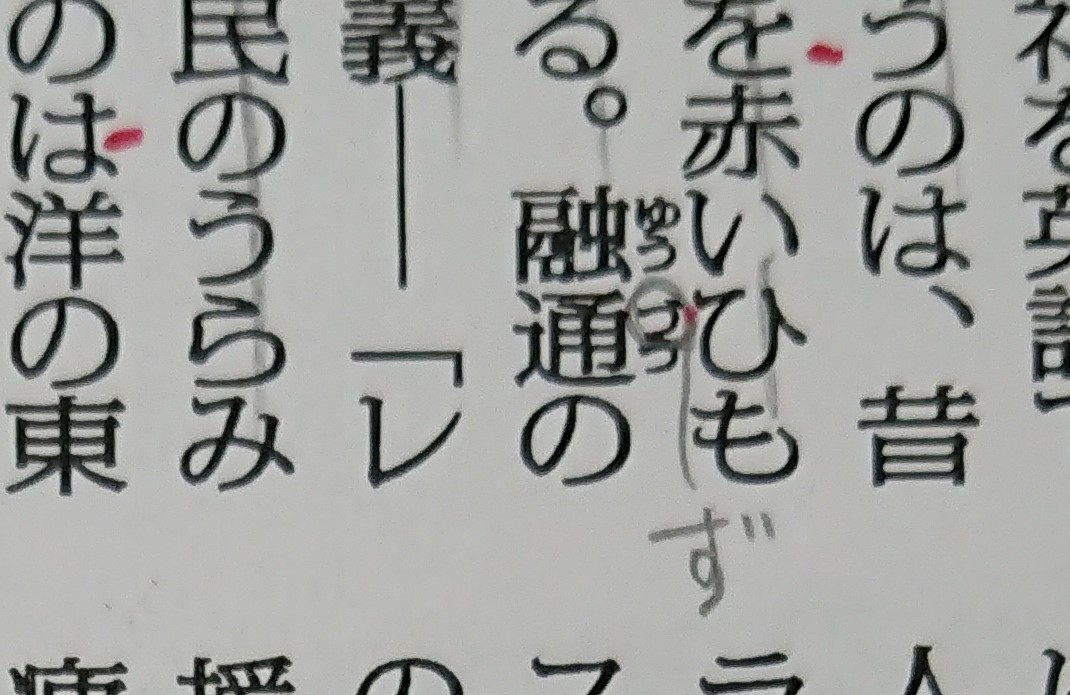 うのは、昔
を赤いひも
ゆうづう
る。融通の
ず
義――「レ
民のうらみ
のは洋の東